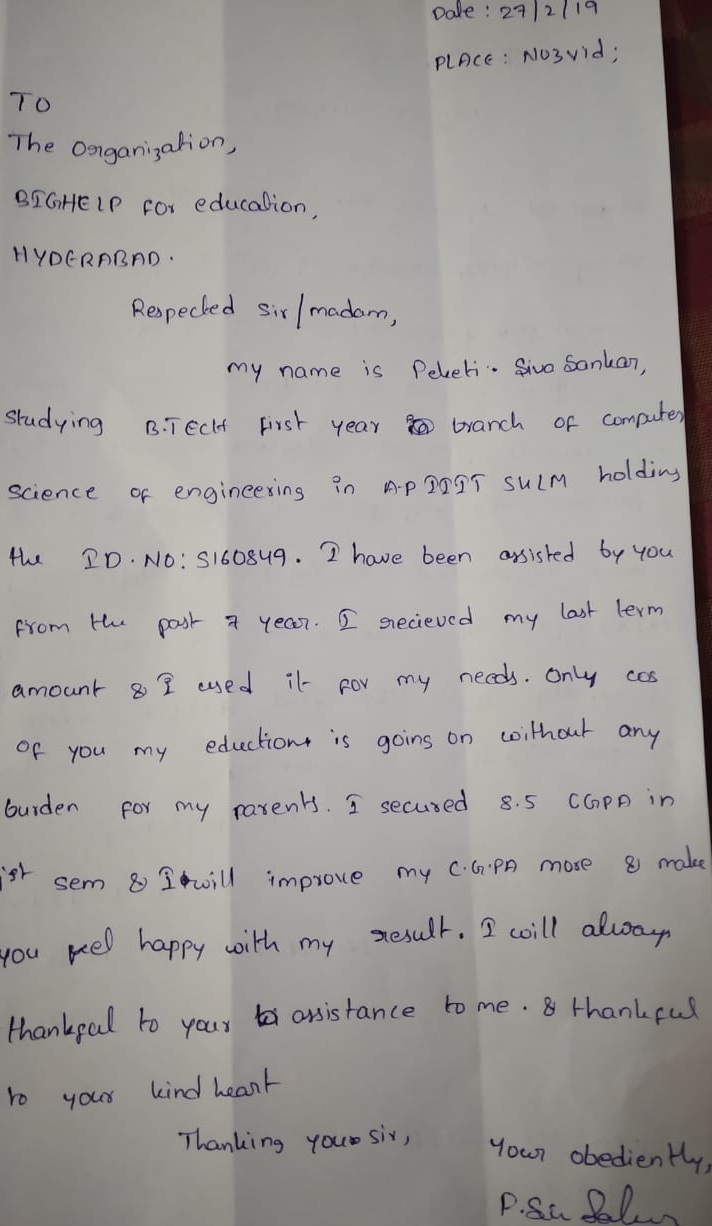 Date : 27/2/19
PLACE : NU3vid;
TO
The Organization,
BIGHELP for education,
HYDERABAD.
Respected sir/madam,
my name is Peketi. Siva Sankar,
studying B.TECH first year branch of computer
science of engineering in A.P IIIT SKLM holding
the ID.NO: S160849. I have been assisted by you
from the past 7 year. I recieved my last term
amount & I used it for my needs. Only cos
of you my eduction is going on without any
burden for my parents. I secured 8.5 CGPA in
1st sem & I will improve my C.G.PA more & make
you feel happy with my result. I will always
thankful to your assistance to me. & thankful
to your kind heart
Thanking you sir,
Your obediently,